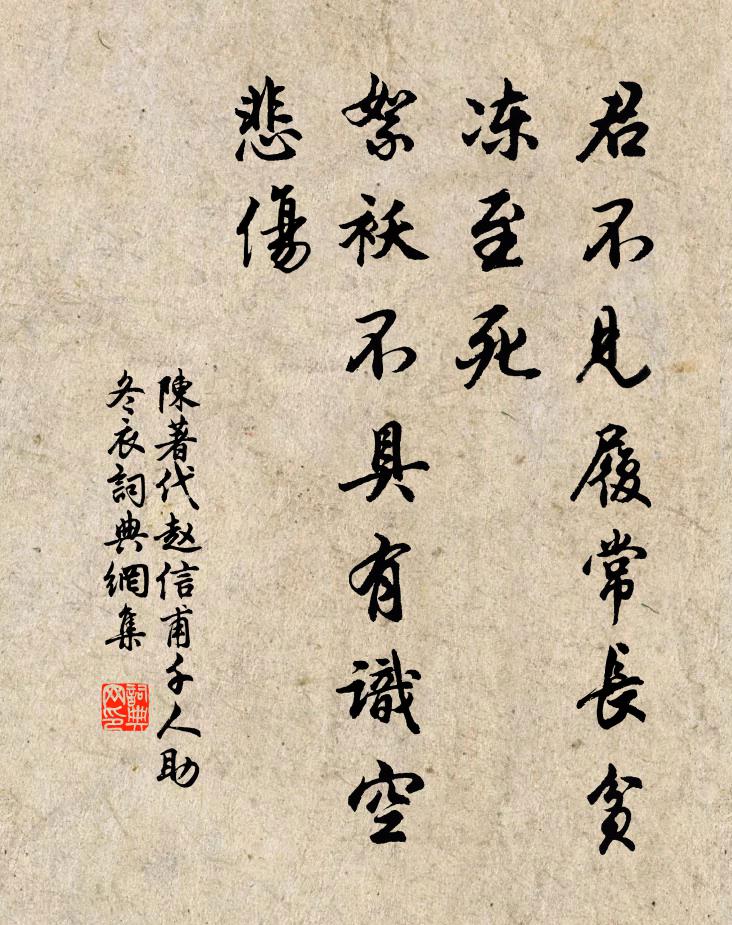 君不见履常长貧
冻至死
絮袄不具有識空
悲傷
陳著代赵信甫千人助
冬衣詞典網集
詞典
网印